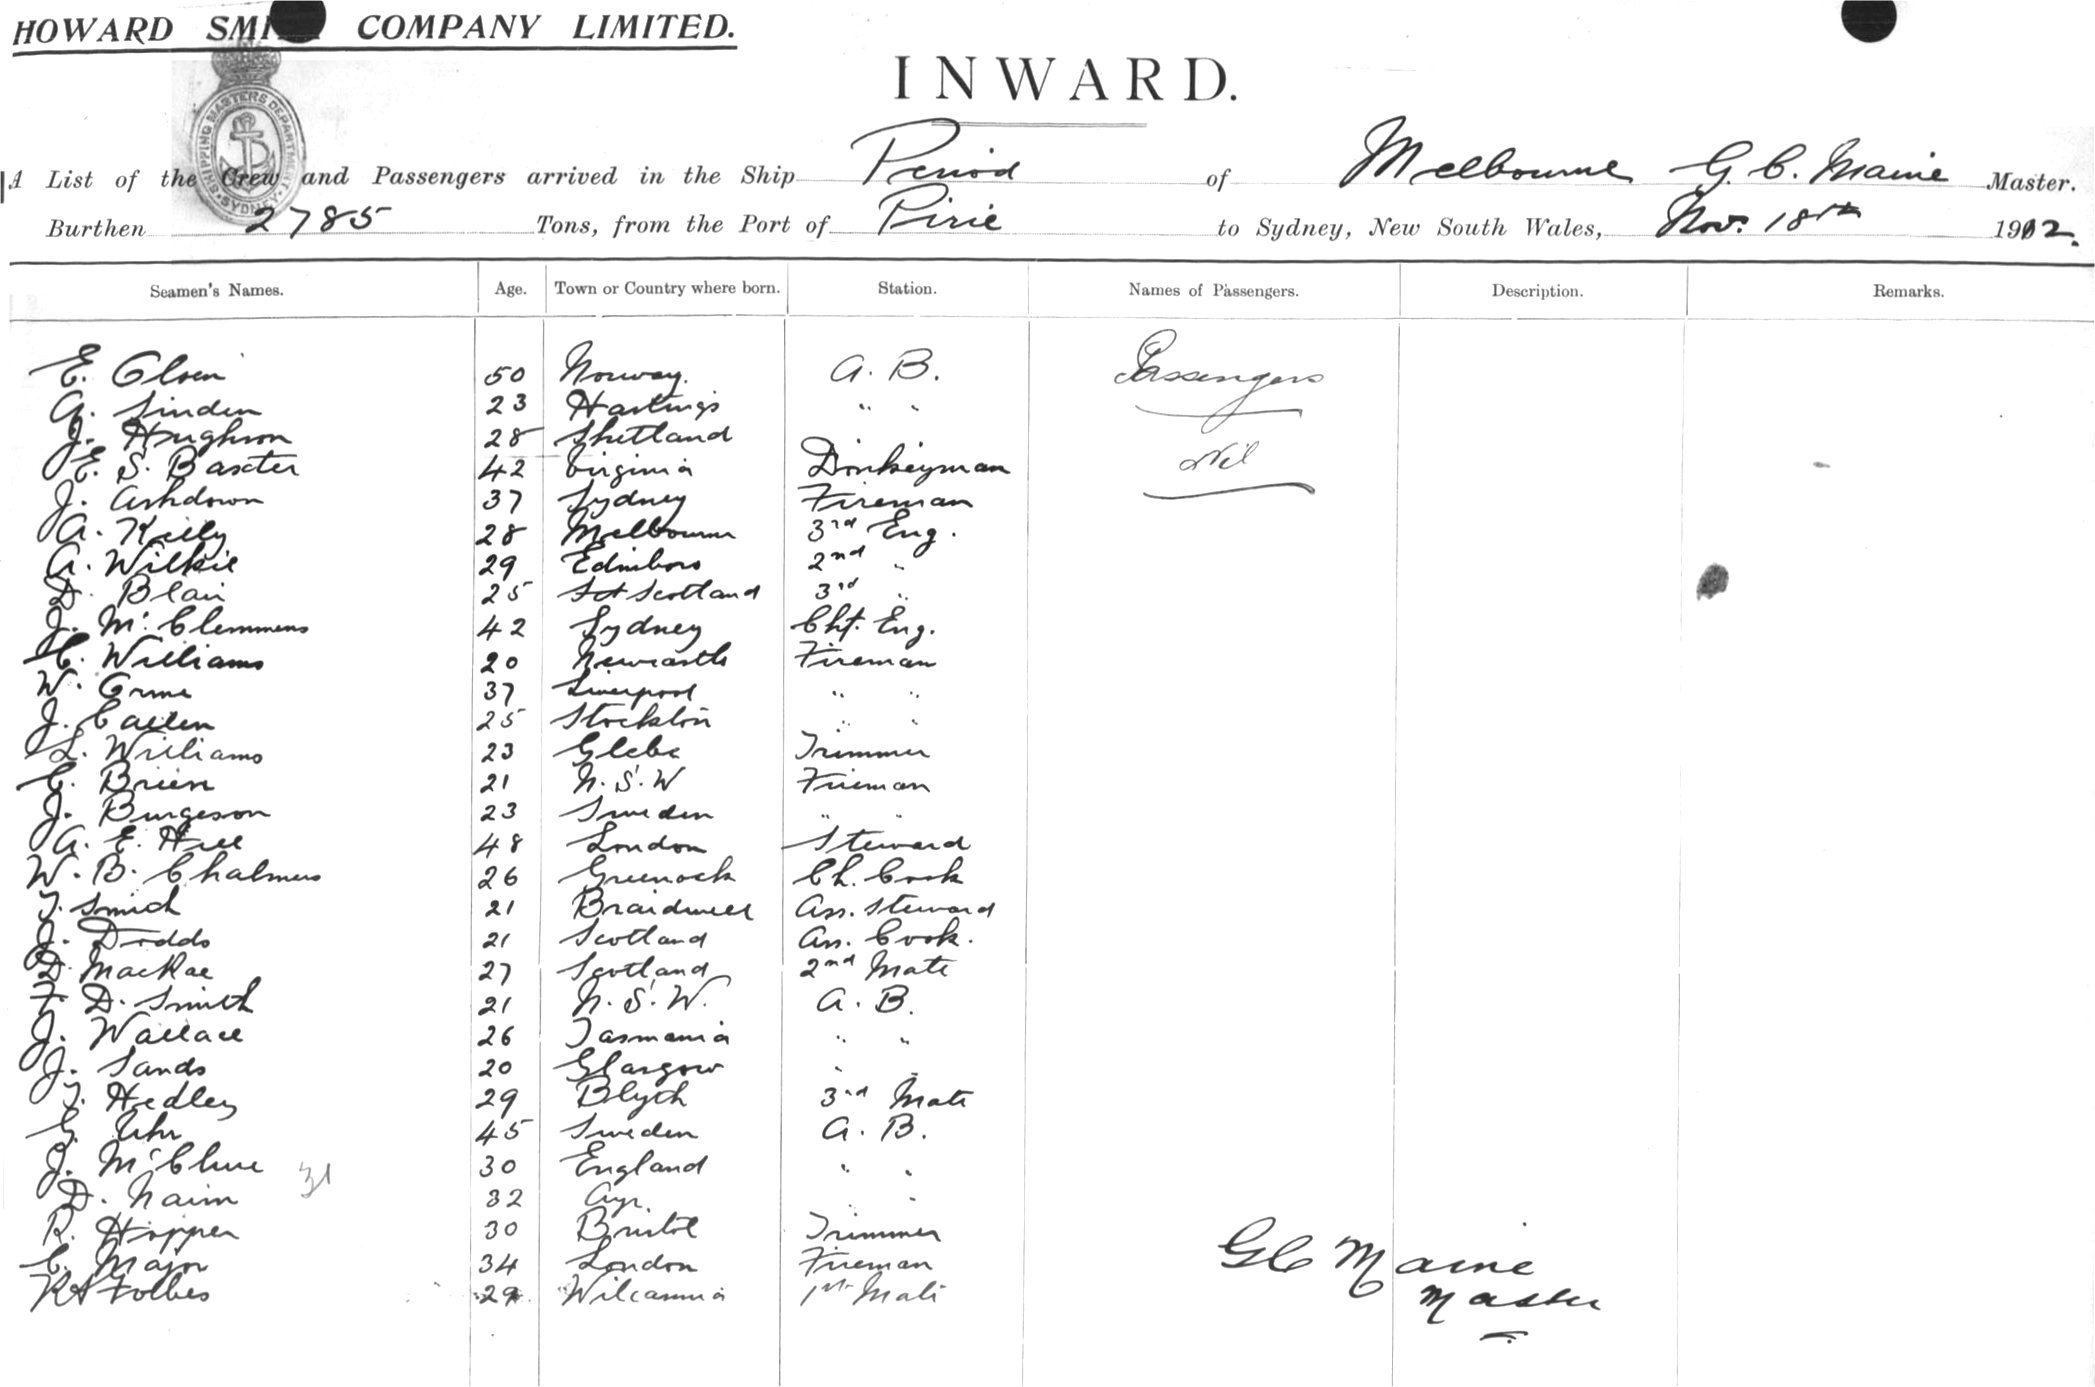 HOWARD SMI COMPANY LIMITED.
INWARD.
SHIPPING MASTERS DEPARTMENT. SYDNEY
A List of the Crew and Passengers arrived in the Ship Period of Melbourne G. C. Maine Master.
Burthen 2785 Tons, from the Port of Pirie to Sydney, New South Wales, Nov. 18th 1912.
Seamen's Names. Age. Town or Country where born. Station. Names of Passengers. Description. Remarks.
E. Olsen 50 Norway. A. B. Passengers
A. Linden 23 Hastings " "
J. Hughson 28 Shetland
E. S. Baxter 42 Virginia Donkeyman Nil
J. Ashdown 37 Sydney Fireman
A. Kelly 28 Melbourne 3rd Eng.
A. Wilkie 29 Edinboro 2nd "
D. Blair 25 Scotland 3rd "
J. Mc Clemmens 42 Sydney Chf. Eng.
C. Williams 20 Newcastle Fireman
W. Orme 37 Liverpool " "
J. Callen 25 Stockton " "
L. Williams 23 Glebe Trimmer
C. Brien 21 N. S. W Fireman
J. Burgeson 23 Sweden " "
A. E. Hill 48 London Steward
W. B. Chalmers 26 Greenock Ch. Cook
T. Smith 21 Braidwell Ass. Steward
J. Dodds 21 Scotland Ass. Cook.
D. MacRae 27 Scotland 2nd Mate
F. D. Smith 21 N. S. W. A. B.
J. Wallace 26 Tasmania " "
J. Sands 20 Glasgow " "
T. Hedley 29 Blyth 3rd Mate
G. Uhr 45 Sweden A. B.
J. McClure 30 England " "
31
D. Nairn 32 Ayr. " "
R. Hopper 30 Bristol Trimmer
C. Major 34 London Fireman
29 Wilcannia 1st Mate
GC Maine
Master